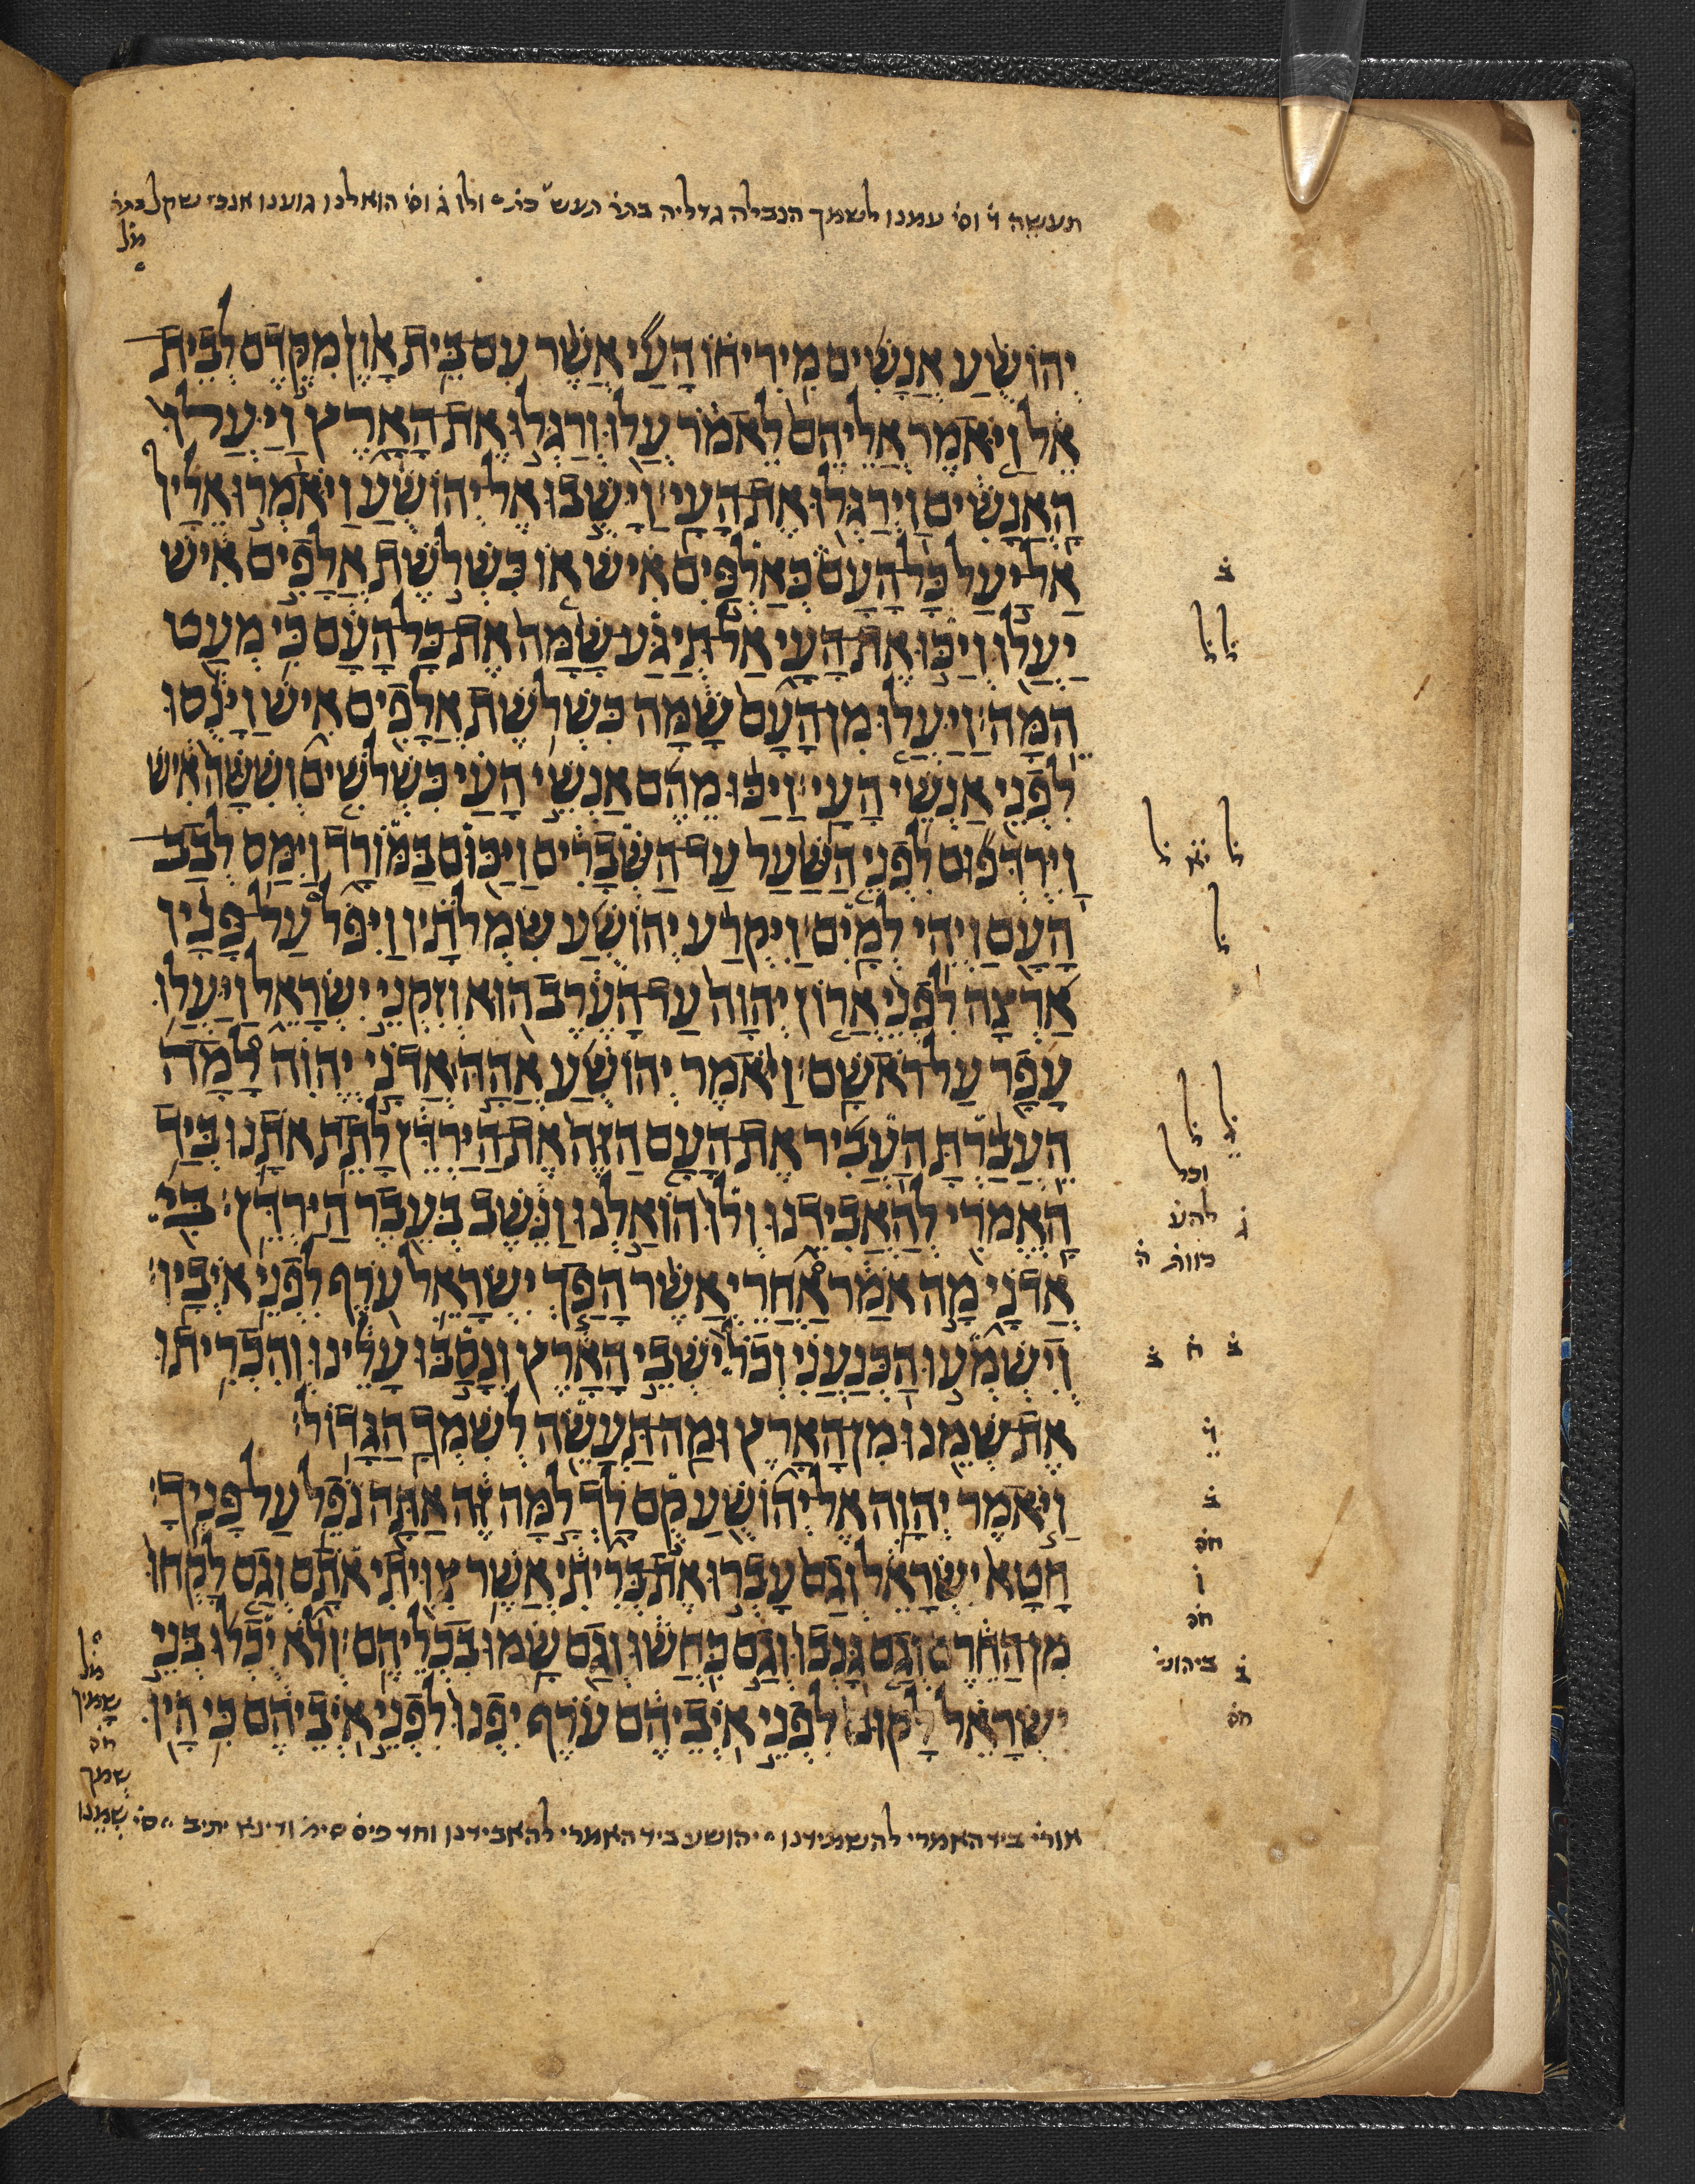 תעשה ו̇ וס̇ עמנו לשמך הנבלה גדליה בתר̇ ולו ג̇ וס̇ הואלנו גוענו אנכי שקל
יְהוֹשֻׁעַ אֲנָשִׁים מִירִיחוֹ הָעַי אֲשֶׁר עִם בֵּית אָוֶן מִקֶּדֶם לְבֵית
אֵל וַיֹּאמֶר אֲלֵיהֶם לֵאמֹר עֲלוּ וְרַגְּלוּ אֶת הָאָרֶץ וַיַּעֲלוּ
הָאֲנָשִׁים וַיְרַגְּלוּ אֶת הָעָי׃ וַיָּשֻׁבוּ אֶל יְהוֹשֻׁעַ וַיֹּאמְרוּ אֵלָיו
אַל יַעַל כָּל הָעָם כְּאַלְפַּיִם אִישׁ אוֹ כִּשְׁלֹשֶׁת אֲלָפִים אִישׁ
יַעֲלוּ וְיַכּוּ אֶת הָעָי אַל תְּיַגַּע שָׁמָּה אֶת כָּל הָעָם כִּי מְעַט
הֵמָּה׃ וַיַּעֲלוּ מִן הָעָם שָׁמָּה כִּשְׁלֹשֶׁת אֲלָפִים אִישׁ וַיָּנֻסוּ
לִפְנֵי אַנְשֵׁי הָעָי׃ וַיַּכּוּ מֵהֶם אַנְשֵׁי הָעַי כִּשְׁלֹשִׁים וְשִׁשָּׁה אִישׁ
וַיִּרְדְּפוּם לִפְנֵי הַשַּׁעַר עַד הַשְּׁבָרִים וַיַּכּוּם בַּמּוֹרָד וַיִּמַּס לְבַב
הָעָם וַיְהִי לְמָיִם׃ וַיִּקְרַע יְהוֹשֻׁעַ שִׂמְלֹתָיו וַיִּפֹּל עַל פָּנָיו
אַרְצָה לִפְנֵי אֲרוֹן יְהוָה עַד הָעֶרֶב הוּא וְזִקְנֵי יִשְׂרָאֵל וַיַּעֲלוּ
עָפָר עַל רֹאשָׁם׃ וַיֹּאמֶר יְהוֹשֻׁעַ אֲהָהּ אֲדֹנָי יְהוִה לָמָה
הֵעֲבַרְתָּ הַעֲבִיר אֶת הָעָם הַזֶּה אֶת הַיַּרְדֵּן לָתֵת אֹתָנוּ בְּיַד
הָאֱמֹרִי לְהַאֲבִידֵנוּ וְלוּ הוֹאַלְנוּ וַנֵּשֶׁב בְּעֵבֶר הַיַּרְדֵּן׃ בִּי
אֲדֹנָי מָה אֹמַר אַחֲרֵי אֲשֶׁר הָפַךְ יִשְׂרָאֵל עֹרֶף לִפְנֵי אֹיְבָיו׃
וְיִשְׁמְעוּ הַכְּנַעֲנִי וְכֹל יֹשְׁבֵי הָאָרֶץ וְנָסַבּוּ עָלֵינוּ וְהִכְרִיתוּ
אֶת שְׁמֵנוּ מִן הָאָרֶץ וּמַה תַּעֲשֵׂה לְשִׁמְךָ הַגָּדוֹל׃
וַיֹּאמֶר יְהוָה אֶל יְהוֹשֻׁעַ קֻם לָךְ לָמָּה זֶּה אַתָּה נֹפֵל עַל פָּנֶיךָ׃
חָטָא יִשְׂרָאֵל וְגַם עָבְרוּ אֶת בְּרִיתִי אֲשֶׁר צִוִּיתִי אֹתָם וְגַם לָקְחוּ
מִן הַחֵרֶם וְגַם גָּנְבוּ וְגַם כִּחֲשׁוּ וְגַם שָׂמוּ בִכְלֵיהֶם׃ וְלֹא יֻכְלוּ בְּנֵי
יִשְׂרָאֵל לָקוּם לִפְנֵי אֹיְבֵיהֶם עֹרֶף יִפְנוּ לִפְנֵי אֹיְבֵיהֶם כִּי הָיוּ
אורי̇ ביד האמרי להשמידנו יהושע ביד האמרי להאבידנו וחד פיס̇ סימ̇ ודינא יתיב